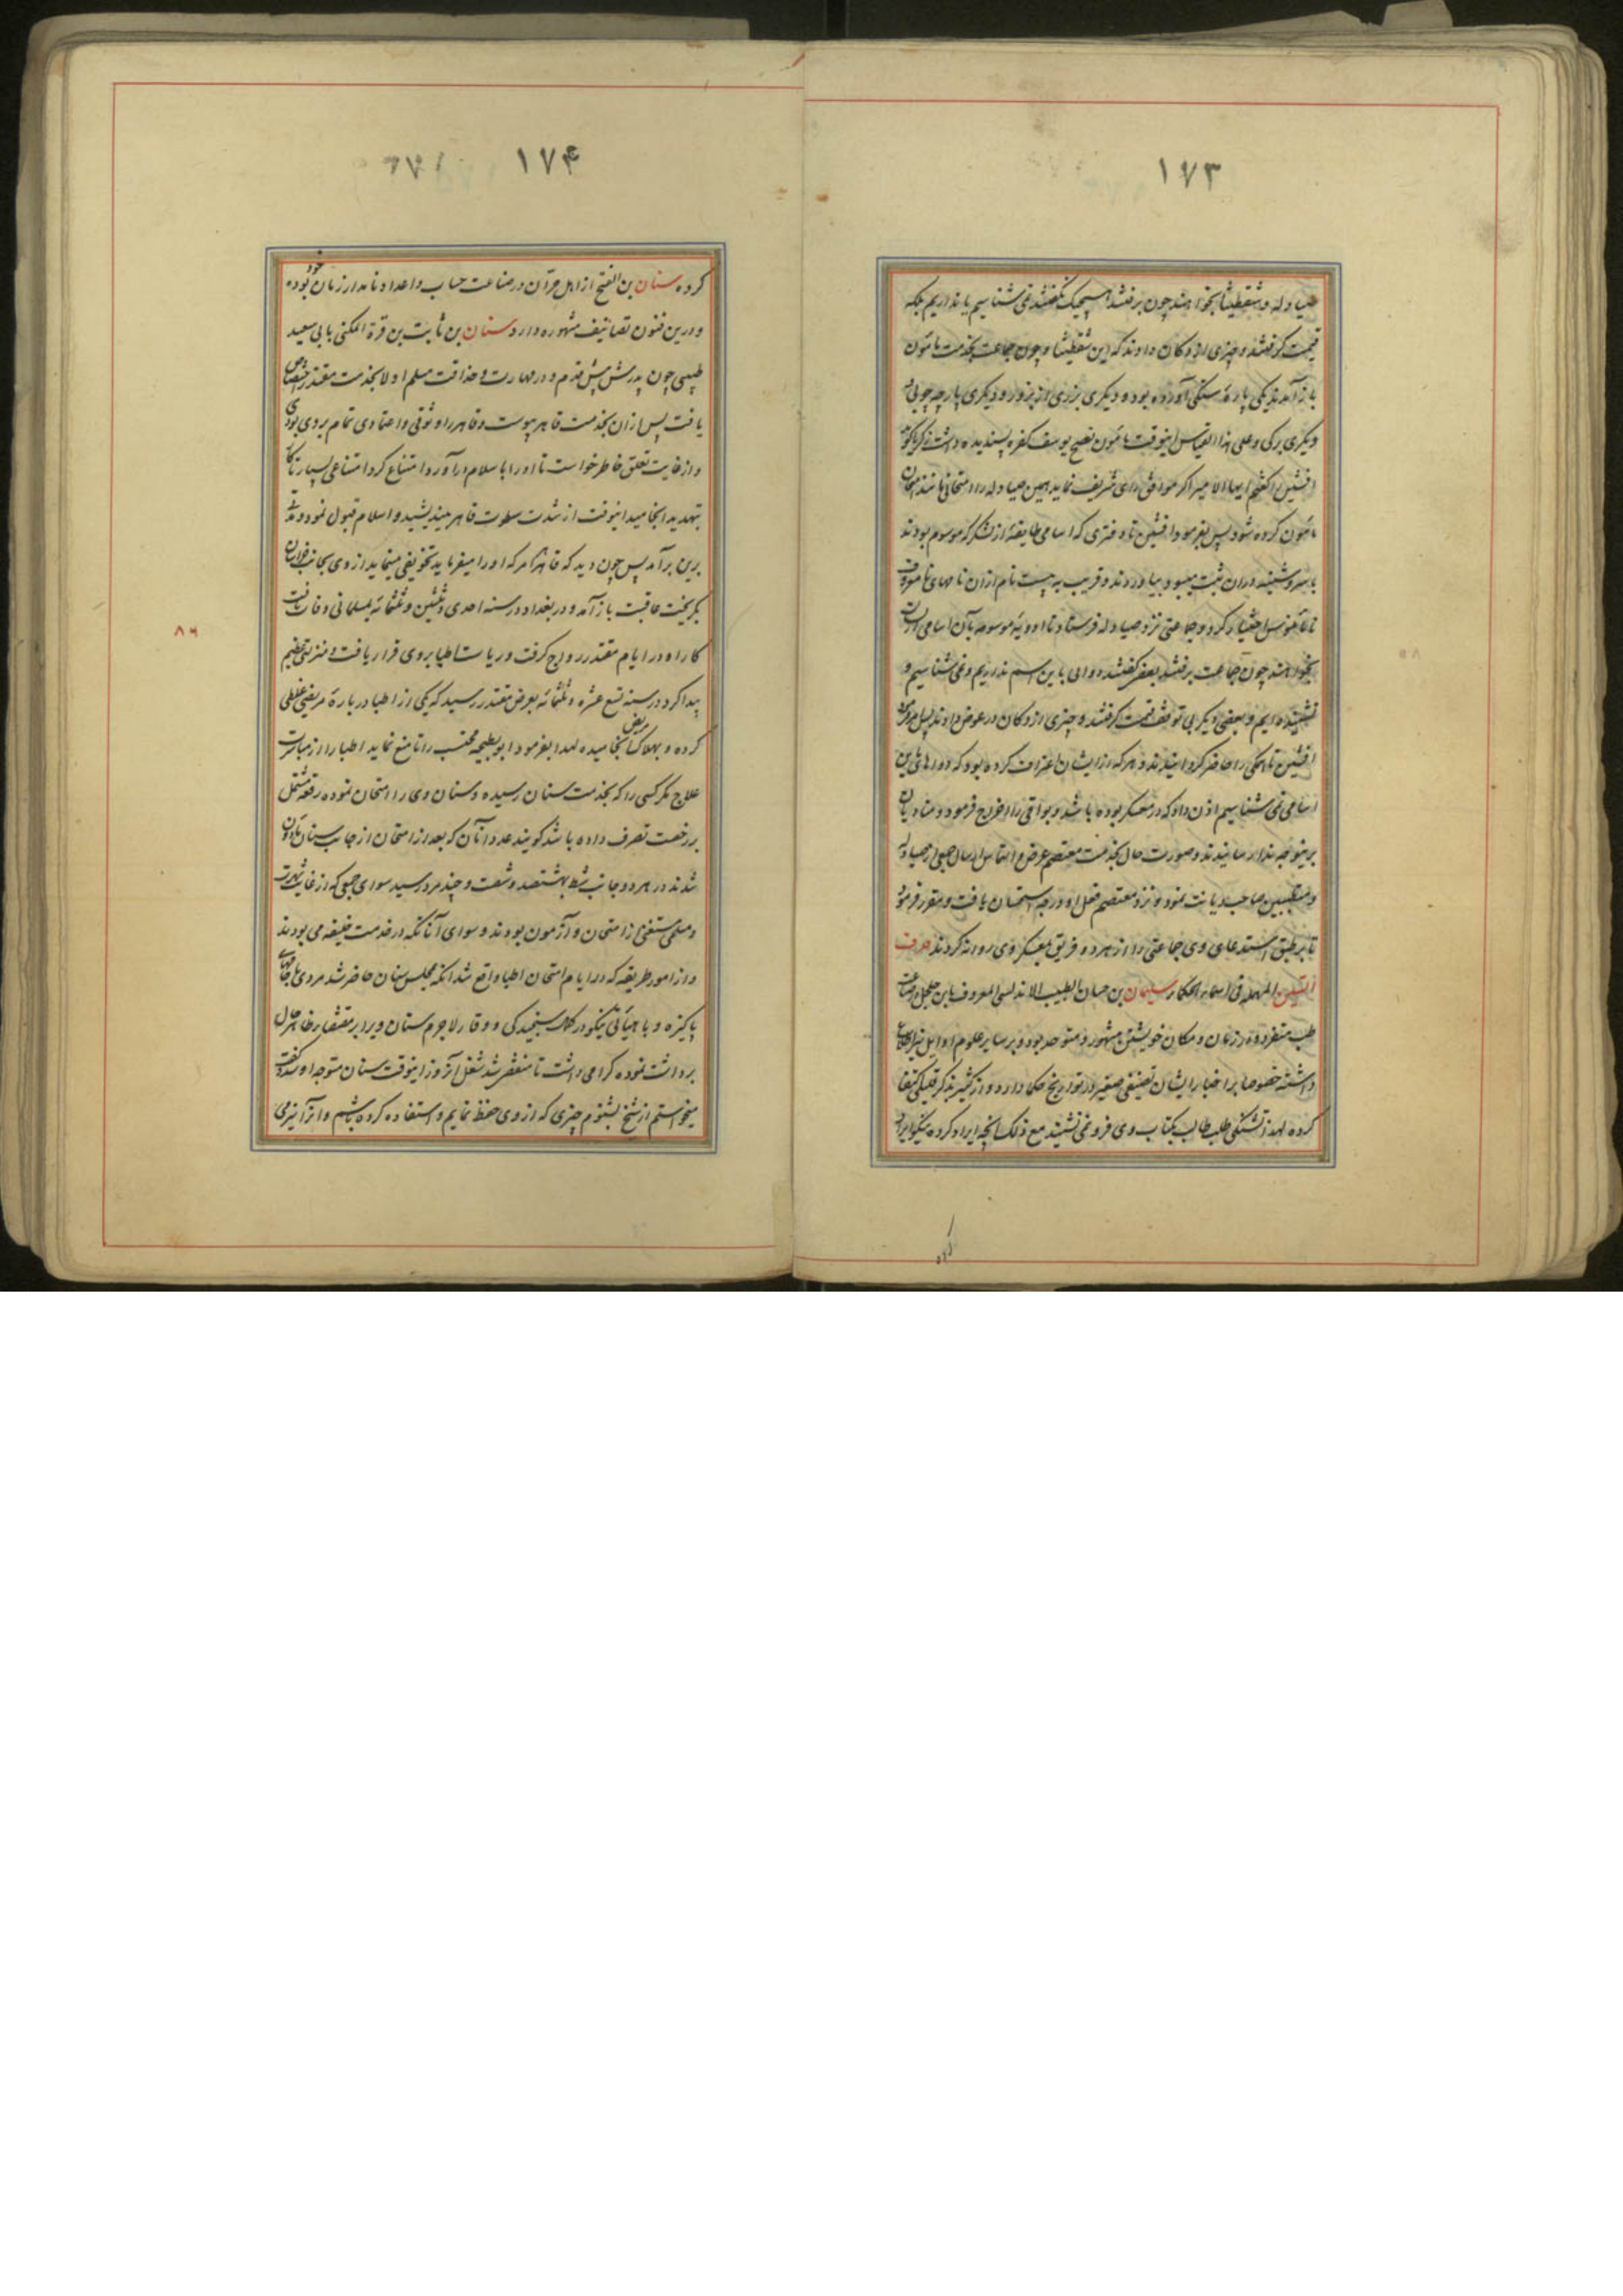 ۱۷۳
صیادله و شقطیثا بخواهند چون برفتند هیچیک نگفتند نمی شناسیم یا نداریم بلکه
قیمت گرفتند و چیزی از دکان دادند که این شقطیثا و چون جماعت بخدمت مامون
باز آمدند یکی پاره سنگی آورده بود و دیگری بزری از بزور و دیگری پارچه چوبی
و دیگری برگی و علی هذا القیاس اینوقت مامون نصح یوسف لقوه پسندیده داشت زکریا گوید
افشین را گفتم ایها الامیر اگر موافق رای شریف نماید همین صیادله را امتحانی مانند امتحان
مامون کرده شود پس بفرمود افشین تا دفتری که اسامی طایفه از لشکر که موسوم بودند
باسروشنیه در آن ثبت میبود بیاوردند و قریب به بیست نام از آن نامهای نامعروف
نامانوس اختیار کرد و جماعتی نزد صیادله فرستاد تا ادویه موسومه بآن اسامی از ایشان
بخواهند چون جماعت برفتند بعضی گفتند دوایی باین اسم نداریم و نمی شناسیم و
نشنیده ایم و بعضی دیگر بی توقف قیمت گرفتند و چیزی از دکان در عوض دادند پس بفرمود
افشین تا همگی را حاضر گردانیدند و هر که از ایشان اعتراف کرده بود که دواهای این
اسامی نمی شناسیم اذن داد که در معسکر بوده باشد و بواقی را اخراج فرمود و منادیان
برینوجه ندا رسانیدند و صورت حال بخدمت معتصم عرض و التماس ارسال جمعی از صیادله
و متطببین صاحب دیانت نمود و نزد معتصم فعل او درجه استحسان یافت و مقرر فرمود
تا بر طبق استدعای وی جماعتی را از هر دو فریق بمعسکر وی روانه کردند حرف
السین المهمله فی اسماء الحکماء سلیمان بن حسان الطبیب الاندلسی المعروف بابن جلجل در صناعت
طب متفرد و در زمان و مکان خویشتن مشهور و متوحد بود و بر سایر علوم اوایل نیز اطلاع
داشته خصوصا بر اخبار ایشان تصنیفی صغیر در تواریخ حکما دارد و از کثیر بذکر قلیلی اکتفا
کرده لهذا تشنگی طلب طالب بکتاب وی فرو نمی نشیند مع ذلک آنچه ایراد کرده نیکو ایراد
کرده
۱۷۴
کرده سنان بن الفتح از اهل حرّان در صناعت حساب و اعداد نامدار زمان خود بوده
و درین فنون تصانیف مشهوره دارد سنان بن ثابت بن قرة المکنی بابی سعید
طبیبی چون پدرش پیش قدم و در مهارت و حذاقت مسلم اولا بخدمت مقتدر اختصاص
یافت پس از آن بخدمت قاهر پیوست و قاهر را وثوقی و اعتمادی تمام بر وی بودی
و از غایت تعلق خاطر خواست تا او را باسلام در آورد امتناع کرد امتناعی بسیار تا کار
بتهدید انجامید اینوقت از شدت سطوت قاهر بیندیشید و اسلام قبول نمود و مدتی
برین بر آمد پس چون دید که قاهر هرگاه که او را میفرماید تخویفی مینماید از وی بجانب خراسان
بگریخت عاقبت باز آمد و در بغداد در سنه احدی و ثلثین و ثلثمائه بمسلمانی وفات یافت
کار او در ایام مقتدر رواج گرفت و ریاست اطبا بر وی قرار یافت و منزلتی عظیم
پیدا کرد در سنه تسع عشره و ثلثمائه بعرض مقتدر رسید که یکی از اطبا در باره مریضی غلطی
کرده و بهلاک مریض انجامیده لهذا بفرمود ابو بطیحه محتسب را تا منع نماید اطبا را از مباشرت
علاج مگر کسی را که بخدمت سنان رسیده و سنان وی را امتحان نموده رقعه مشتمل
بر رخصت تصرف داده باشد گویند عدد آنان که بعد از امتحان از جانب سنان ماذون
شدند در هر دو جانب شط بهشتصد و شصت و چند مرد رسید سوای جمعی که از غایت شهرت
و مسلمی مستغنی از امتحان و آزمون بودند و سوای آنانکه در خدمت خلیفه می بودند
و از امور طریفه که در ایام امتحان اطبا واقع شد آنکه مجلس سنان حاضر شد مردی با جامهای
پاکیزه و با هیأتی نیکو در کمال سنجیدگی و وقار لاجرم سنان ویرا بر مقتضای ظاهر حال
برداشت نموده گرامی داشت تا منقضی شد شغل آنروز اینوقت سنان متوجه او شده گفت
میخواستم از شیخ بشنوم چیزی که از وی حفظ نمایم و استفاده کرده باشم و از آینرمی
۸۶